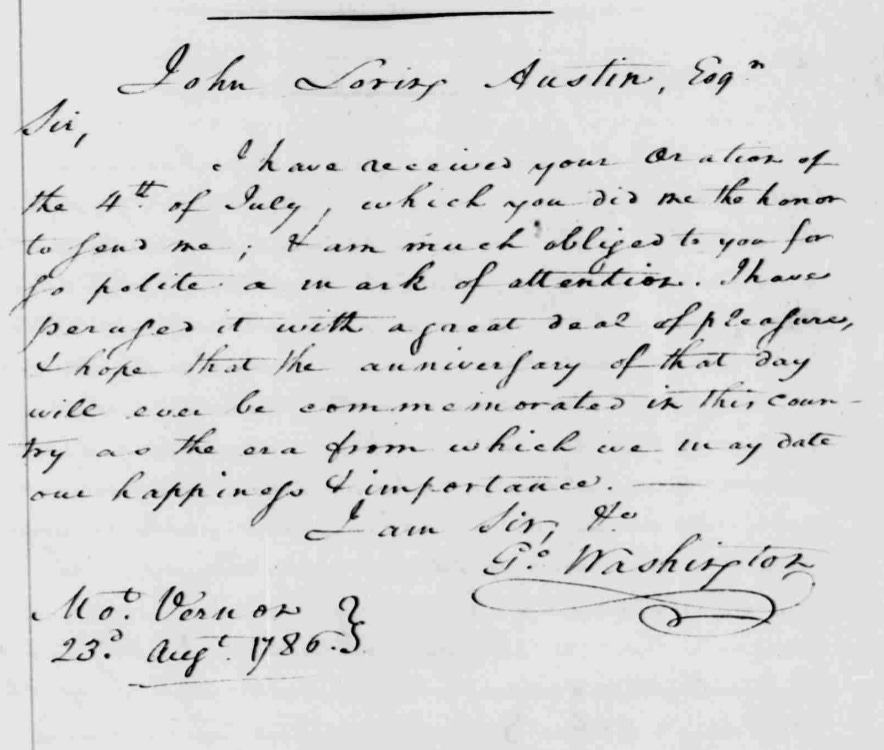 John Loring Austin, Esqr
Sir,
I have received your Oration of
the 4th of July, which you did me the honor
to send me; & am much obliged to you for
so polite a mark of attention. I have
perused it with a great deal of pleasure,
& hope that the anniversary of that day
will ever be commemorated in this coun-
try as the era from which we may date
our happiness & importance. —
I am Sir, &c
Go. Washington
Mot. Vernon }
23d. Augt. 1786. }